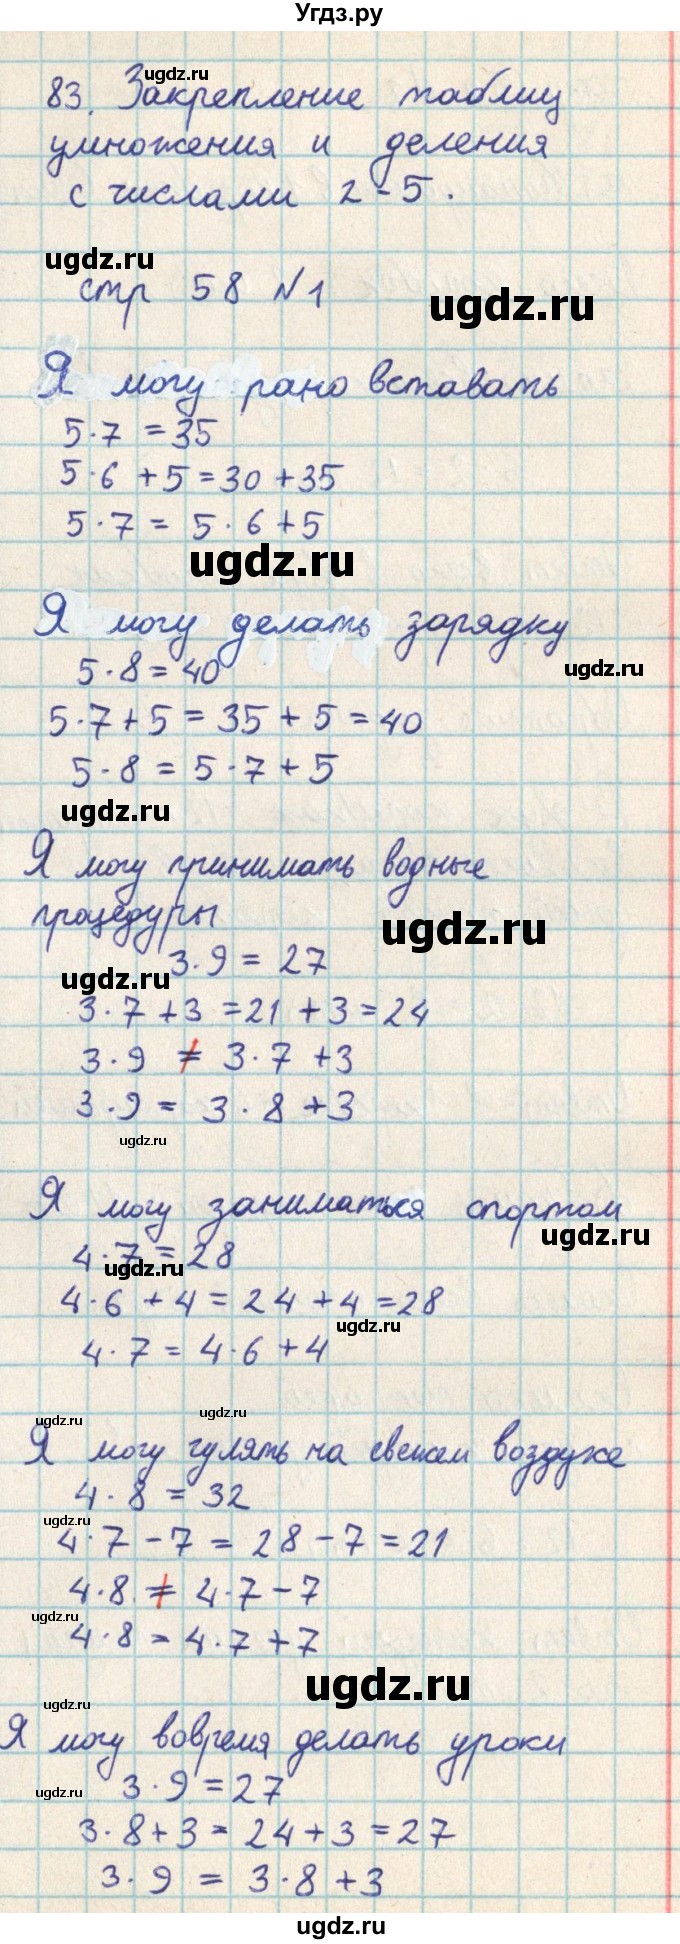 Угдз.ру
ugdz.ru
83. Закрепление таблиц
умножения и деления
с числами 2-5.
ugdz.ru
ugdz.ru
стр 58 №1
ugdz.ru
Я могу рано вставать
5·7 = 35
5·6 + 5 = 30 + 35
5·7 = 5·6 + 5
ugdz.ru
Я могу делать зарядку
ugdz.ru
5·8 = 40
5·7 + 5 = 35 + 5 = 40
5·8 = 5·7 + 5
ugdz.ru
Я могу принимать водные
процедуры
ugdz.ru
3·9 = 27
ugdz.ru
3·7 + 3 = 21 + 3 = 24
3·9 ≠ 3·7 + 3
3·9 = 3·8 + 3
ugdz.ru
Я могу заниматься спортом
ugdz.ru
4·7 = 28
ugdz.ru
4·6 + 4 = 24 + 4 = 28
ugdz.ru
4·7 = 4·6 + 4
ugdz.ru
ugdz.ru
Я могу гулять на свежем воздухе
4·8 = 32
ugdz.ru
4·7 - 7 = 28 - 7 = 21
4·8 ≠ 4·7 - 7
ugdz.ru
4·8 = 4·7 + 7
ugdz.ru
ugdz.ru
Я могу вовремя делать уроки
3·9 = 27
ugdz.ru
3·8 + 3 = 24 + 3 = 27
3·9 = 3·8 + 3
ugdz.ru